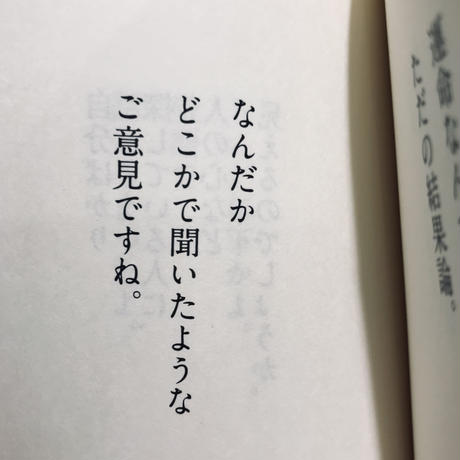 運命なん
ただの結果論。
なんだか
どこかで聞いたような
ご意見ですね。